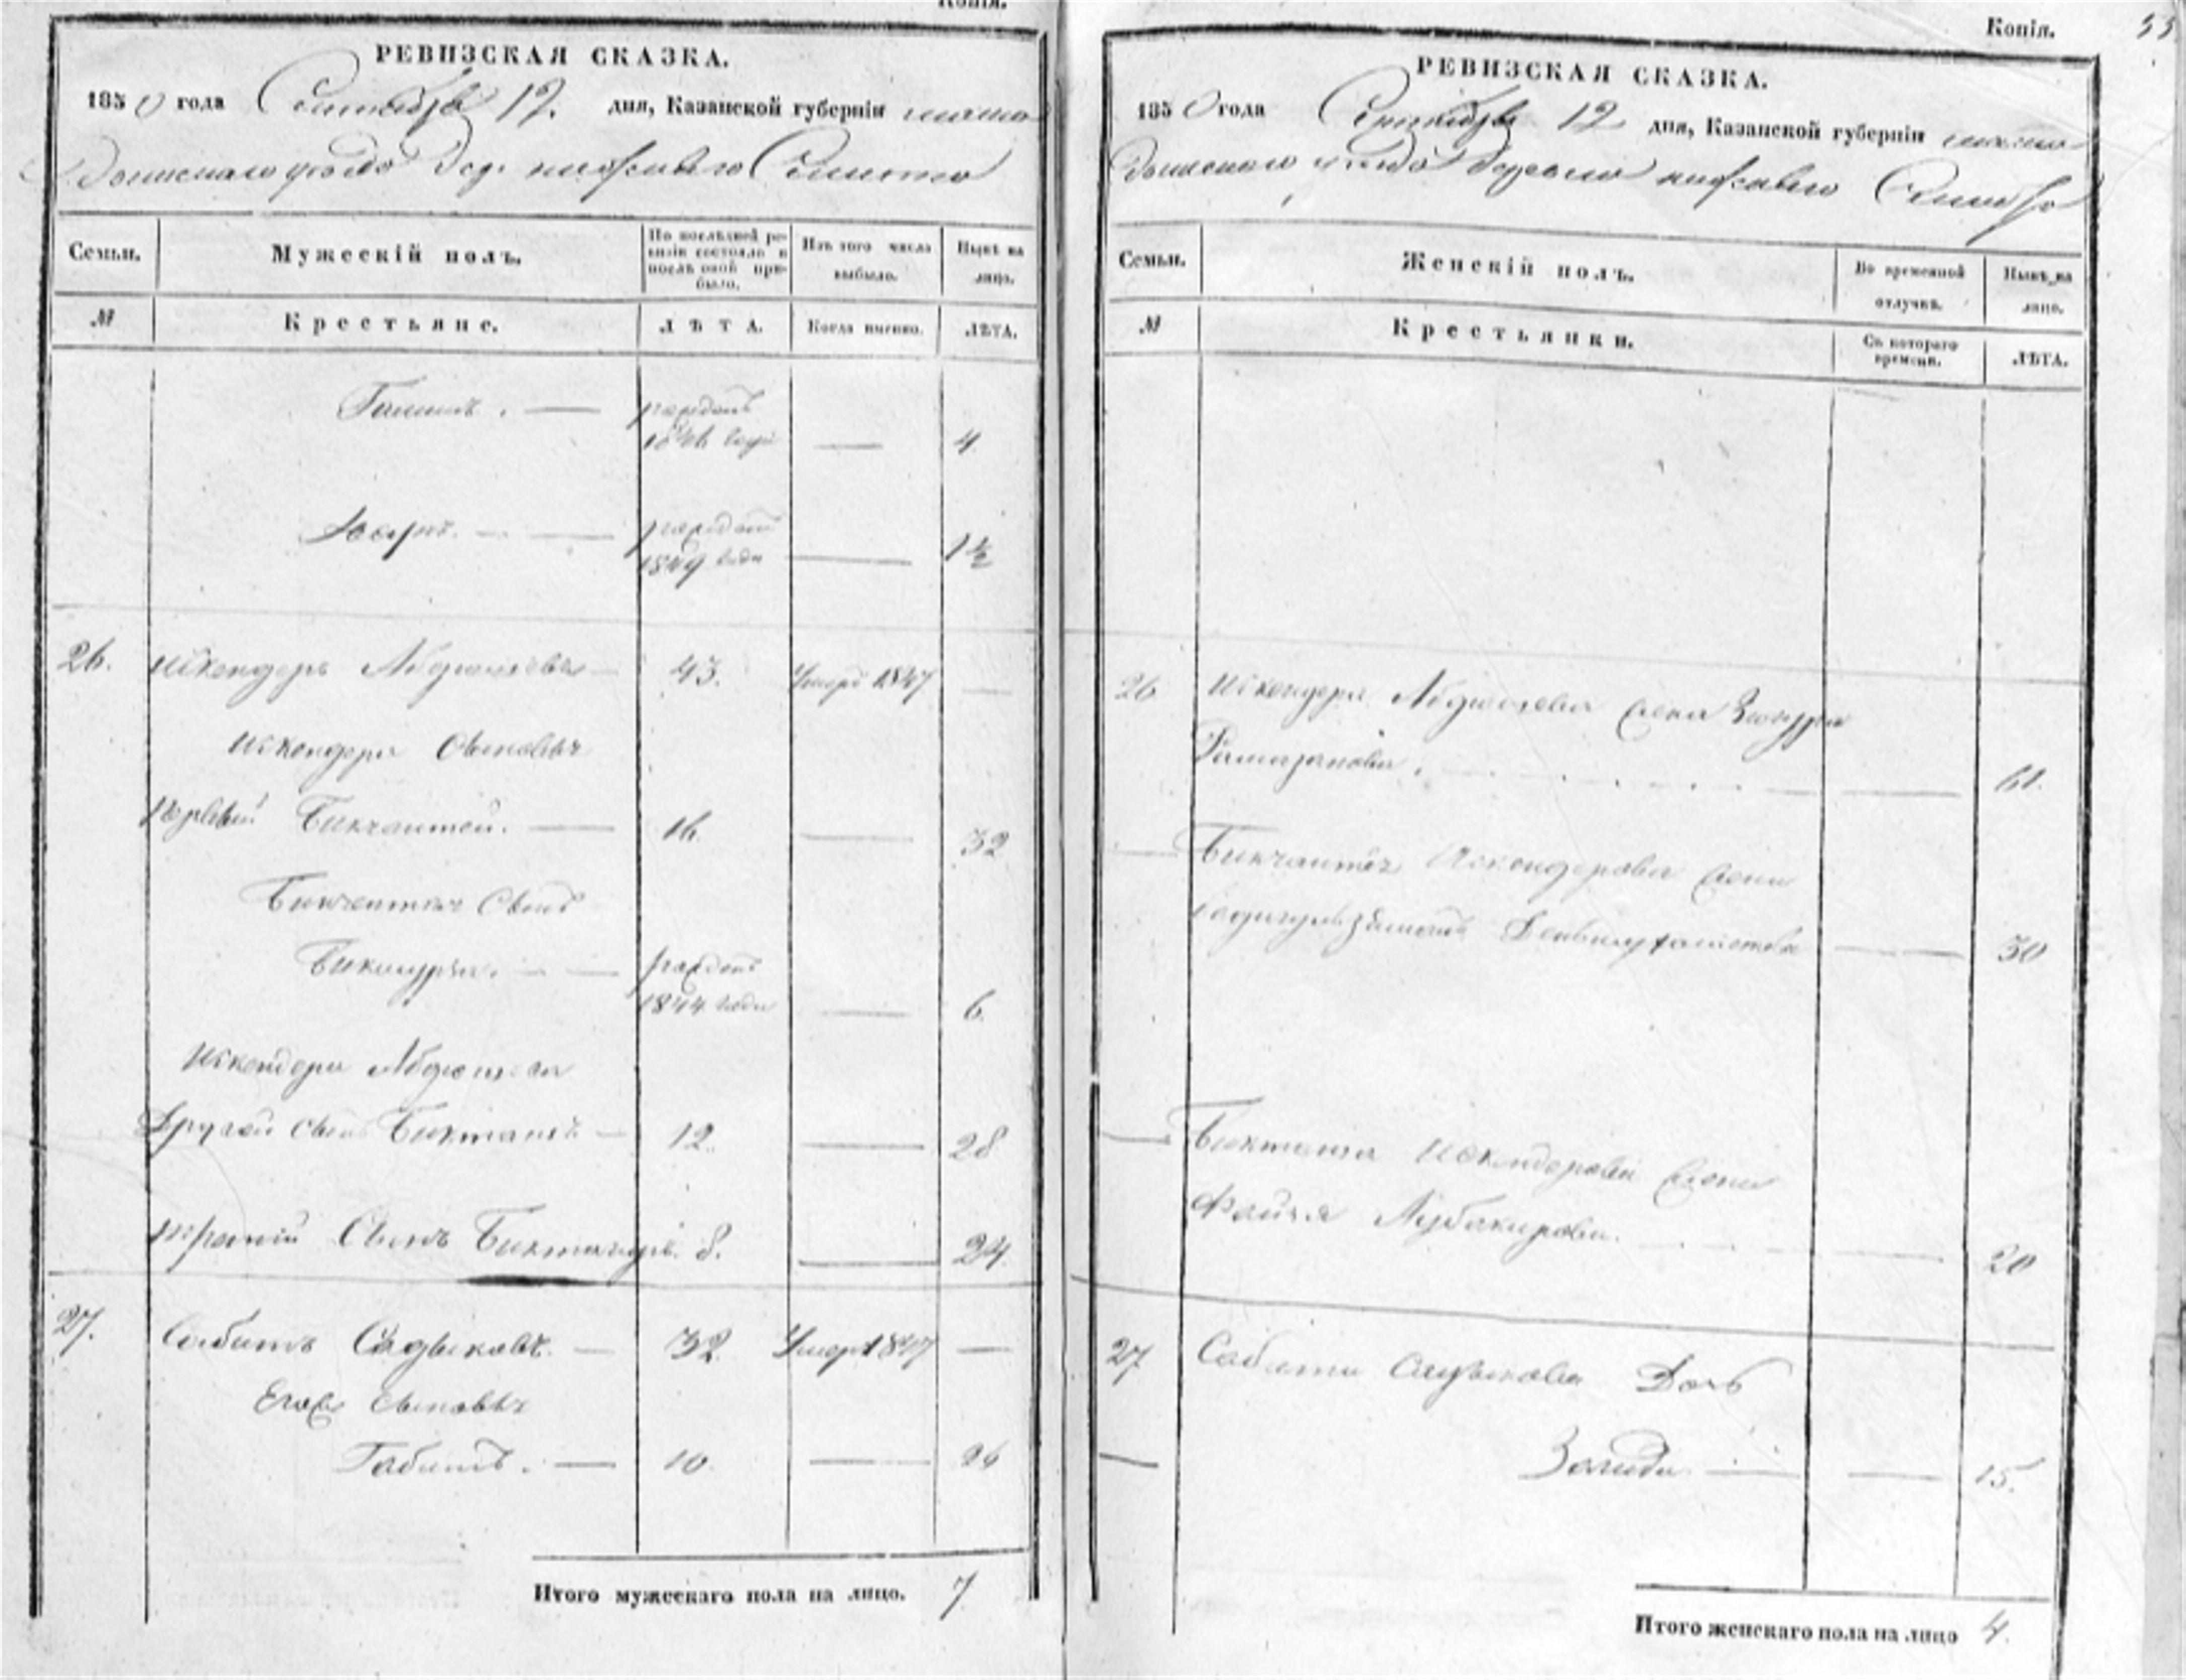 Копія.
РЕВИЗСКАЯ СКАЗКА.
1850 года Сентября 12. дня, Казанской губерніи мама
дышскаго уѣзда дер. нижняго
Семьи. Мужескій полъ. По послѣдней ре-
визіи состояло и
послѣ оной при-
было. Изъ того числа
выбыло. Нынѣ на
лицо.
№ Крестьяне. ЛѢТА. Когда именно. ЛѢТА.
рожденъ
1846 года — 4
рожденъ
1849 года — 1½
26. Искендеръ — 43. Умеръ 1847 —
Искендера сыновья
Первый Бикчантей. — 16. — 32
Бикчентея сынъ
— рожденъ
1844 года — 6.
Искендера
Другой сынъ Бикташъ — 12. — 28
третій сынъ Биктагиръ. 8. — 24.
27. Сабитъ Садыковъ. — 32. Умеръ 1847 —
Его сыновья
Габитъ. — 10. — 26
Итого мужескаго пола на лицо. 7
Копія. 33
РЕВИЗСКАЯ СКАЗКА.
1850 года Сентября 12 дня, Казанской губерніи мама
дышскаго уѣзда деревни нижняго
Семьи. Женскій полъ. Во временной
отлучкѣ. Нынѣ на
лицо.
№ Крестьянки. Съ котораго
времени. ЛѢТА.
26 Искендера жена
Рамазанова. — 61.
— Бикчантея Искендерова жена
— 30
— Бикташа Искендерова жена
— 20
27 Сабита Садыкова дочь
— Залида — 15.
Итого женскаго пола на лицо 4.